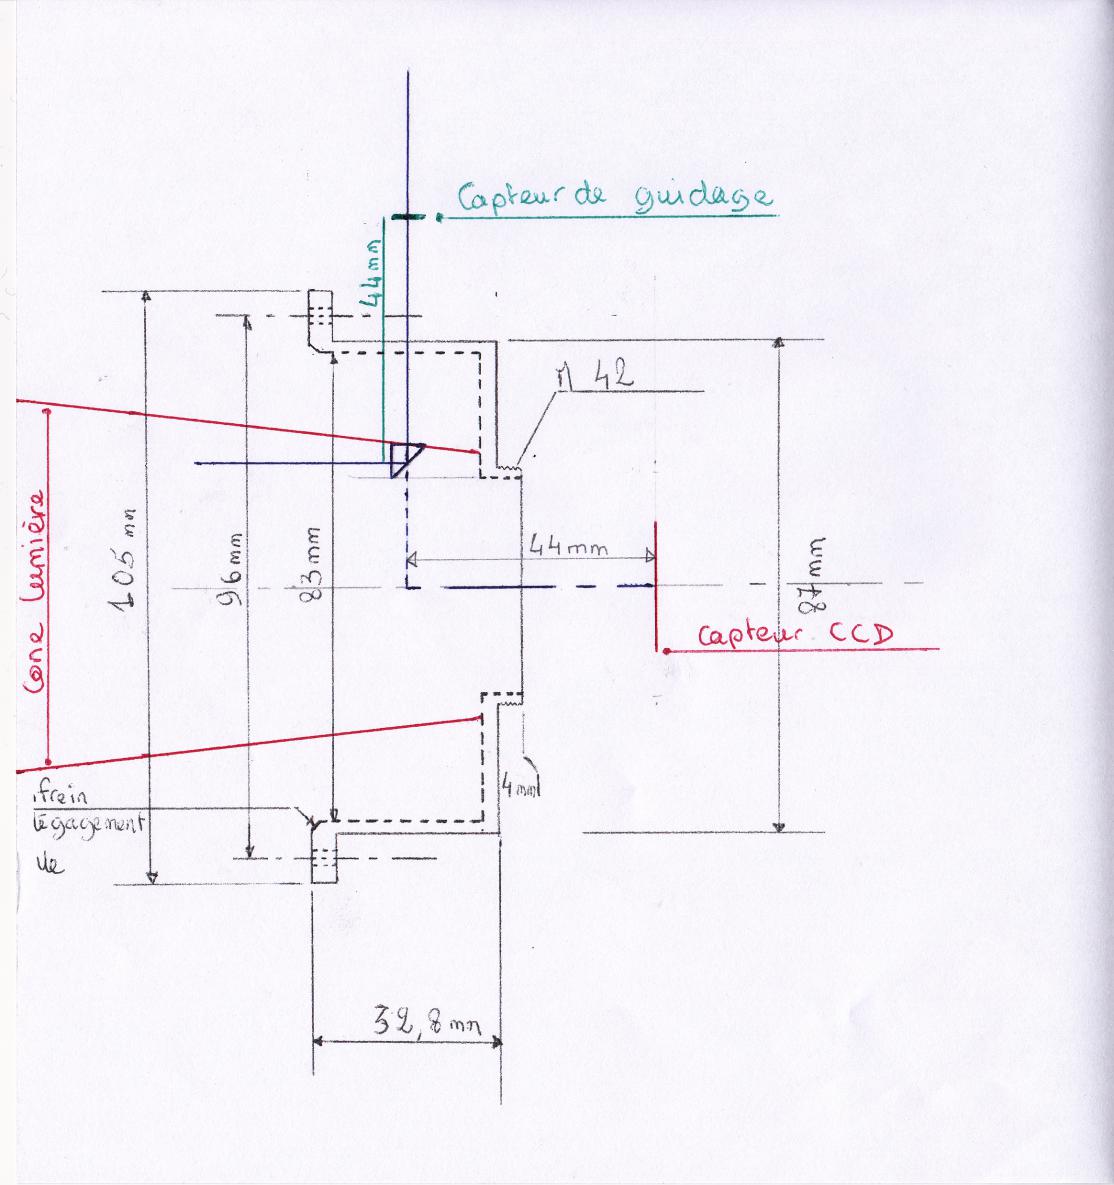 Capteur de guidage
44mm
M 42
44mm
105 mm
96mm
83mm
87mm
Cone Lumière
Capteur CCD
frein
dégagement
vle
4mm
32,8mm